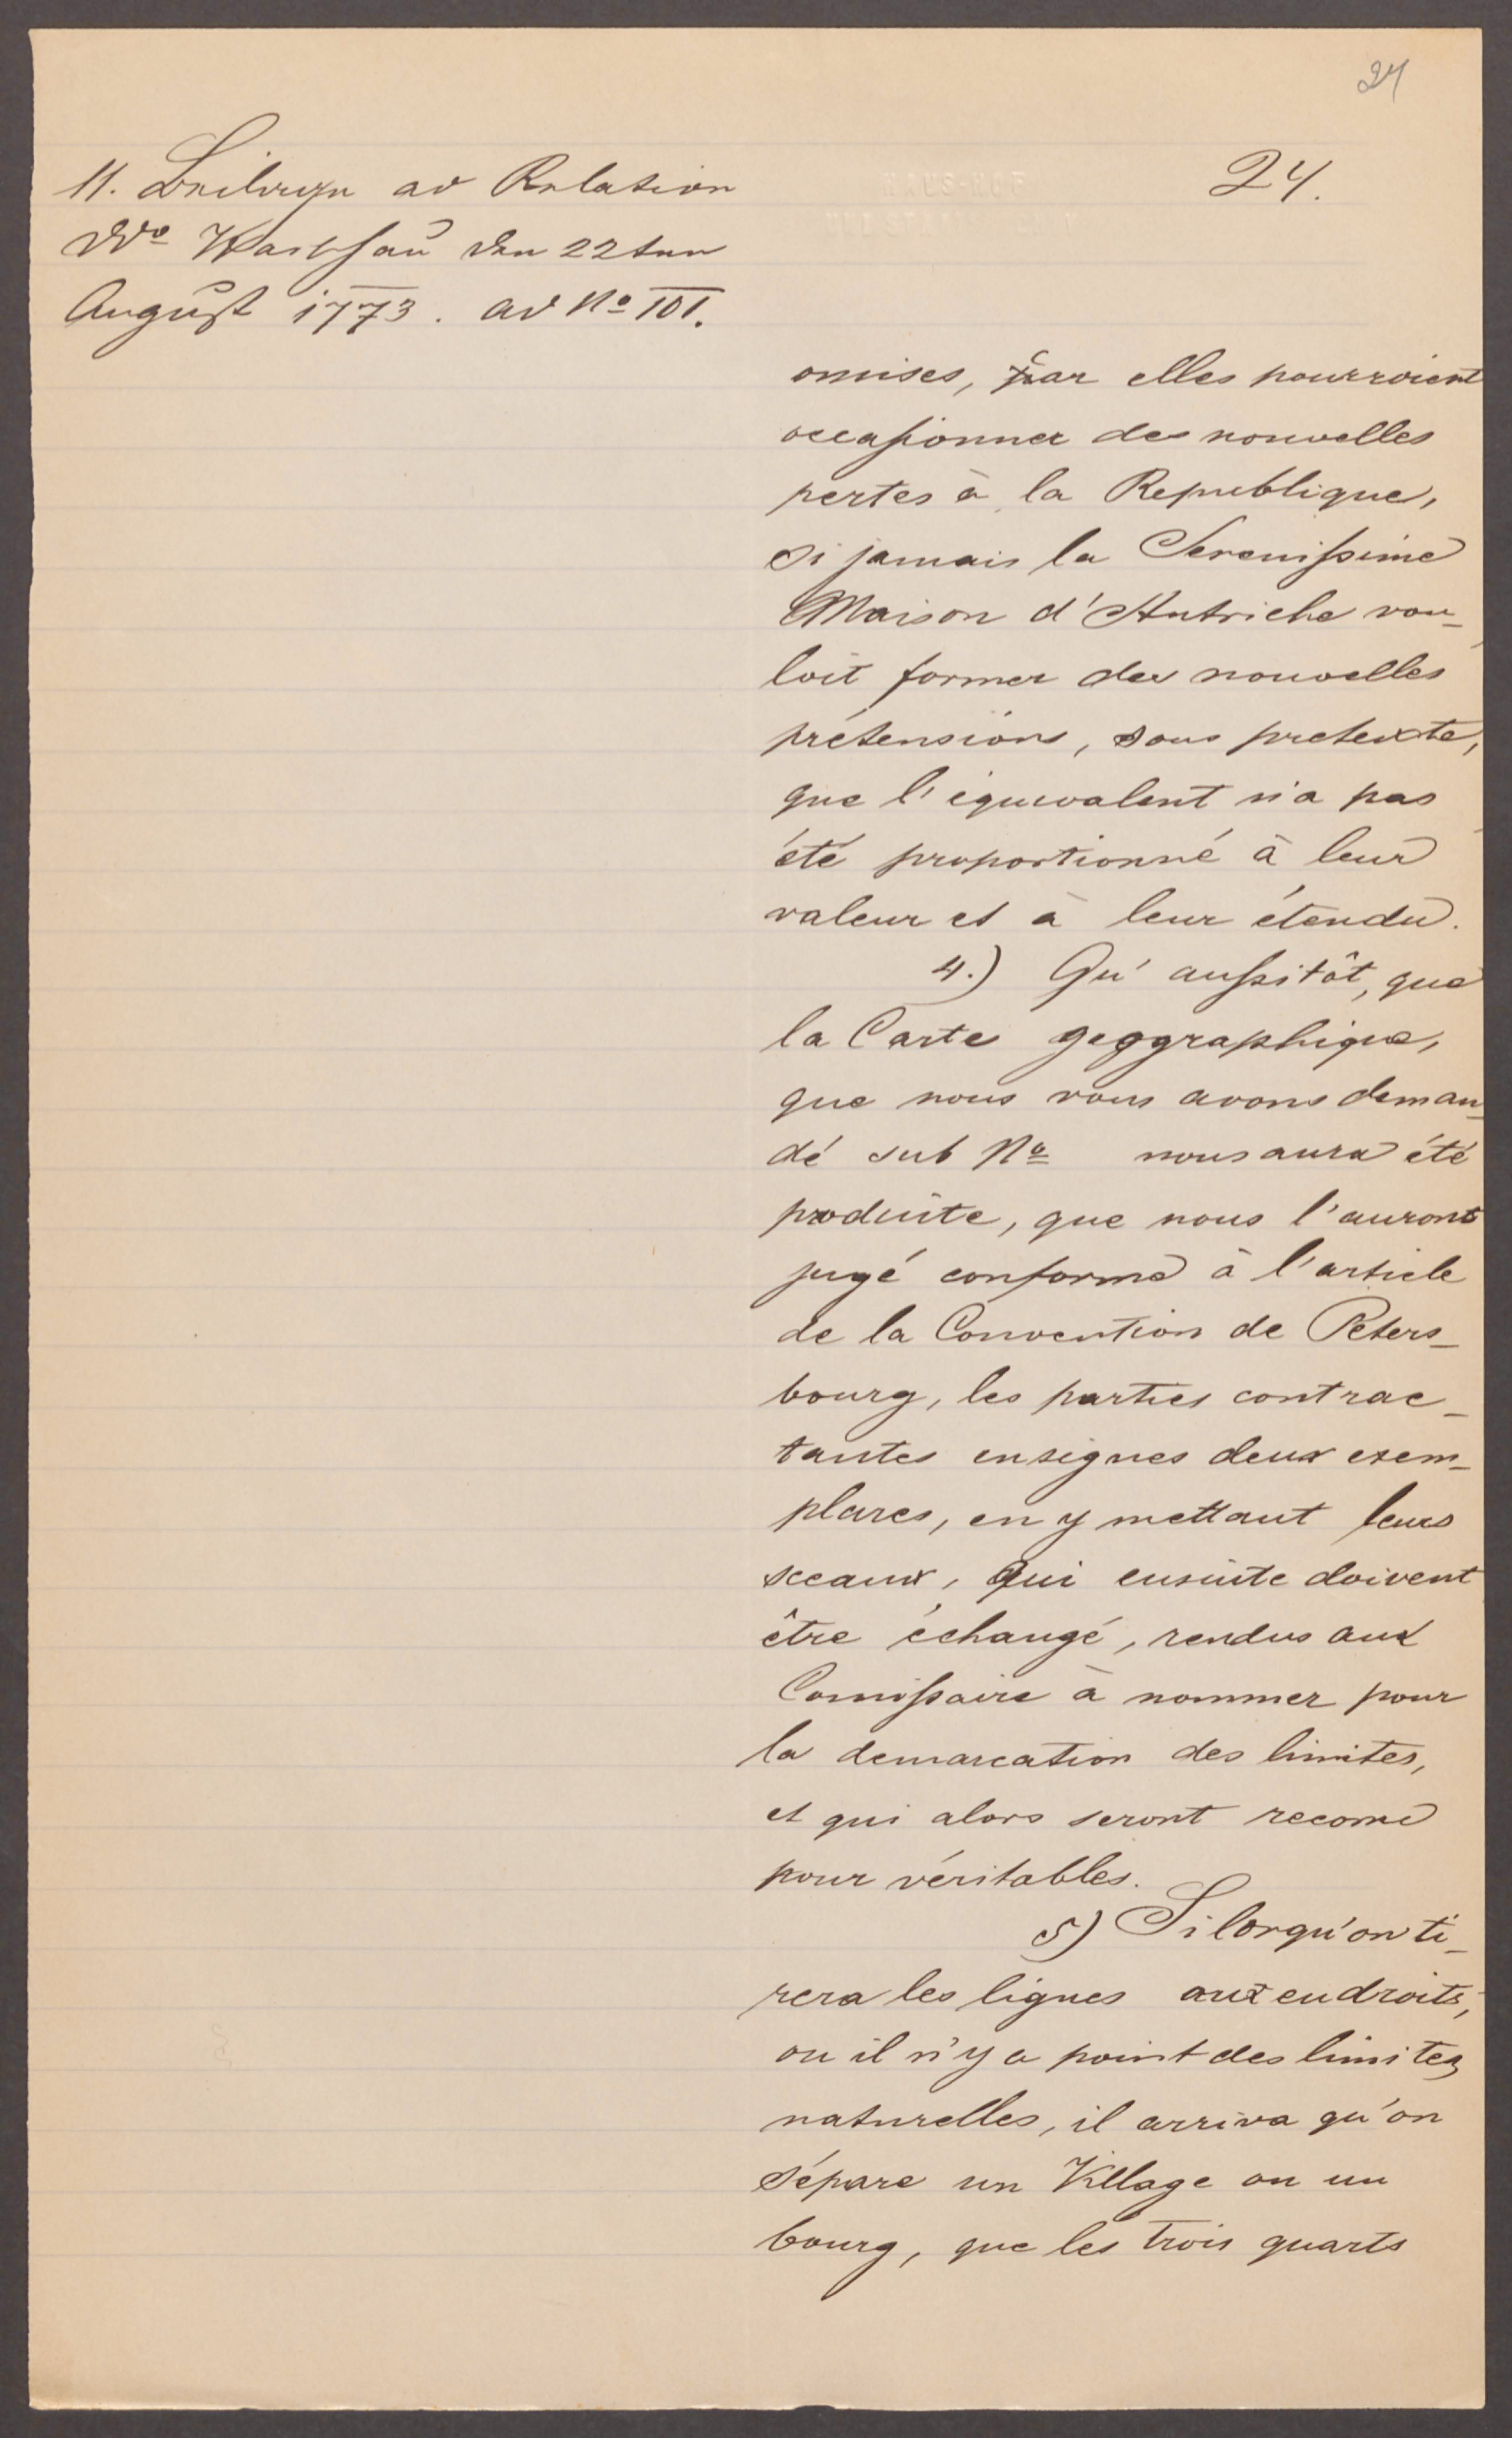 24
11. Beilage ad Relation
Dto Warschau den 22ten
August 1773. ad No III.
24.
omises, car elles pourroient
occasionner des nouvelles
pertes à la Republique,
si jamais la Serenissime
Maison d'Autriche vou_
loit former des nouvelles
prétensions, sous pretexte,
que l'équivalent n'a pas
été proportionné à leur
valeur et à leur étendu.
4.) Qu' aussitôt, que
la Carte geographique,
que nous vous avons deman_
dé sub No nous aura été
produite, que nous l'auront
jugé conforme à l'article
de la Convention de Peters_
bourg, les parties contrac_
tantes ensignes deux exem_
plares, en y mettant leurs
sceaux, qui ensuite doivent
être échangé, rendus aux
Comissaire à nommer pour
la demarcation des limites,
et qui alors seront
pour véritables.
5) Si lorqu'on ti_
rera les lignes aux endroits,
ou il n'y a point des limites
naturelles, il arriva qu'on
sépare un Village ou un
bourg, que les trois quarts